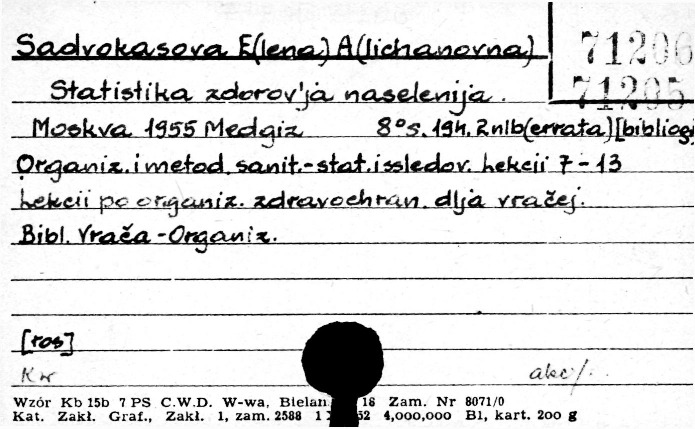 Sadvokasova E(lena) A(lichanovna)
71206
71205
Statistika zdorov'ja naselenija.
Moskva 1955 Medgiz 8° s. 194, 2nlb(errata)[bibliogr
Organiz. i metod. sanit.-stat. issledov. Lekcii 7-13
Lekcii po organiz. zdravochran. dlja vračej.
Bibl. Vrača-Organiz.
[ros]
Kw akc/.
Wzór Kb 15b 7 PS C.W.D. W-wa, Bielan 18 Zam. Nr 8071/0
Kat. Zakł. Graf., Zakł. 1, zam. 2588 1 52 4,000,000 B1, kart. 200 g